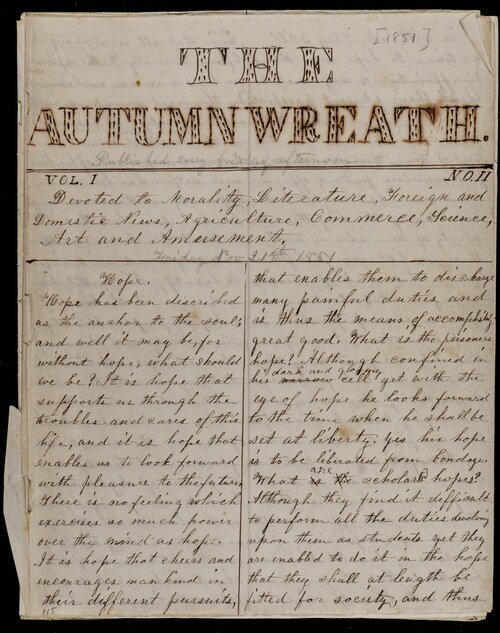 [1851.]
THE
AUTUMN WREATH.
Published every Friday afternoon
VOL. I NO. II
Devoted to Morality, Literature, Foreign and
Domestic News, Agriculture, Commerce, Science,
Art and Amusement.
Friday Nov 21st 1851
Hope.
Hope has been described
as the anchor to the soul;
and well it may be, for
without hope, what should
we be? It is hope that
supports us through the
troubles and cares of this
life, and it is hope that
enables us to look forward
with pleasure to the future.
There is no feeling which
exercises so much power
over the mind as hope.
It is hope that cheers and
encourages man kind in
their different pursuits,
that enables them to discharge
many painful duties and
is thus the means of accomplishing
great good. What is the prisoners
hope? Although confined in
dark and gloomy
his narrow cell yet with the
eye of hope he looks forward
to the time when he shall be
set at liberty. yes his hope
is to be liberated from bondage.
are
What is the scholars hopes?
Although they find it difficult
to perform all the duties devolving
upon them as students yet they
are enabled to do it in the hope
that they shall at length be
fitted for society, and thus